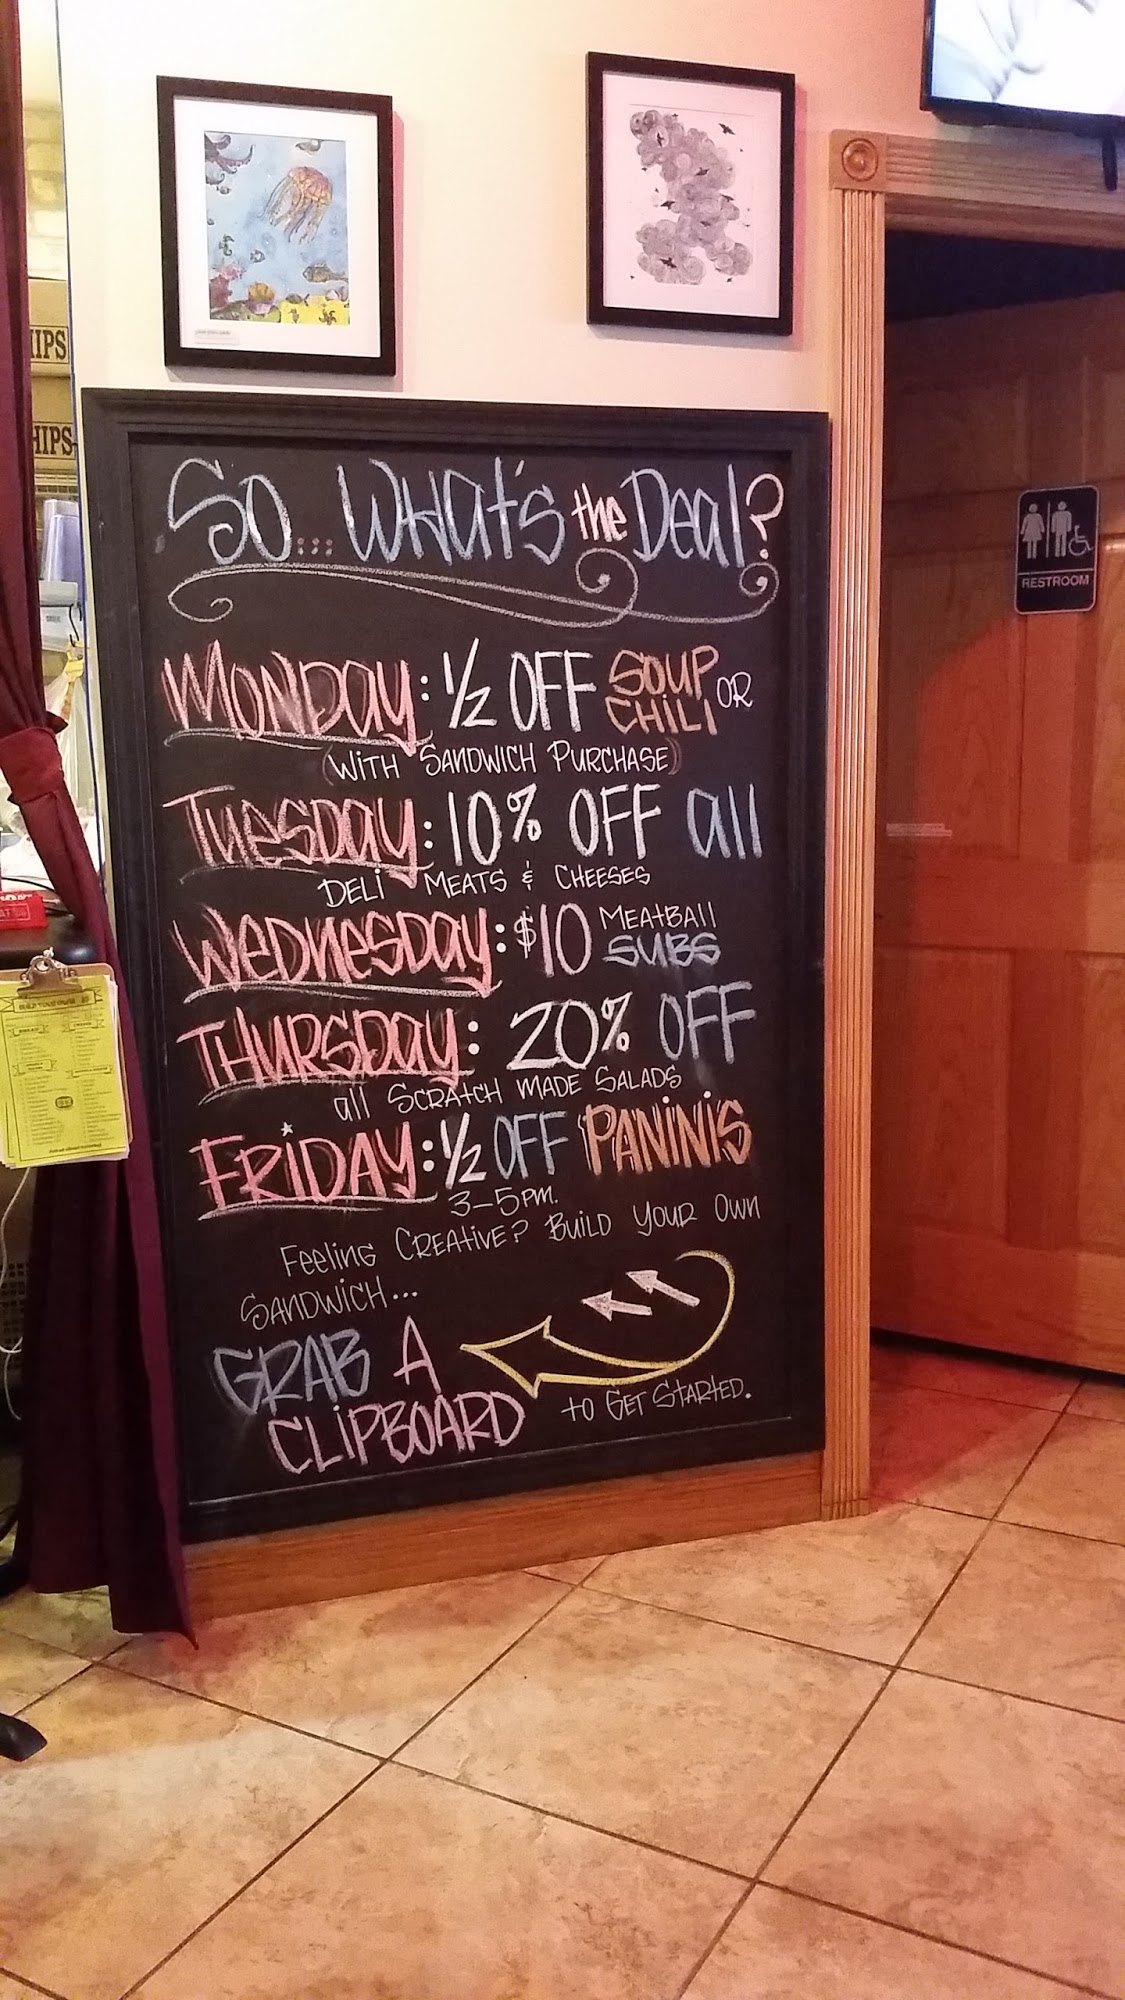 So... What's the Deal?
Monday: 1/2 OFF SOUP OR
CHILI
(WITH SANDWICH PURCHASE)
Tuesday: 10% OFF all
DELI MEATS & CHEESES
WEDNESDAY: $10 MEATBAll
SUBS
THURSDAY: 20% OFF
all SCRATCH MADE SALADS
FRiDAY: 1/2 OFF PANiNi'S
3-5PM.
Feeling CREATIVE? BUiLD YOUR OWN
SANDWICH...
GRAB A
CLiPBOARD
to GET STARTED.
RESTROOM
IPS
HIPS
BUILD YOUR OWN